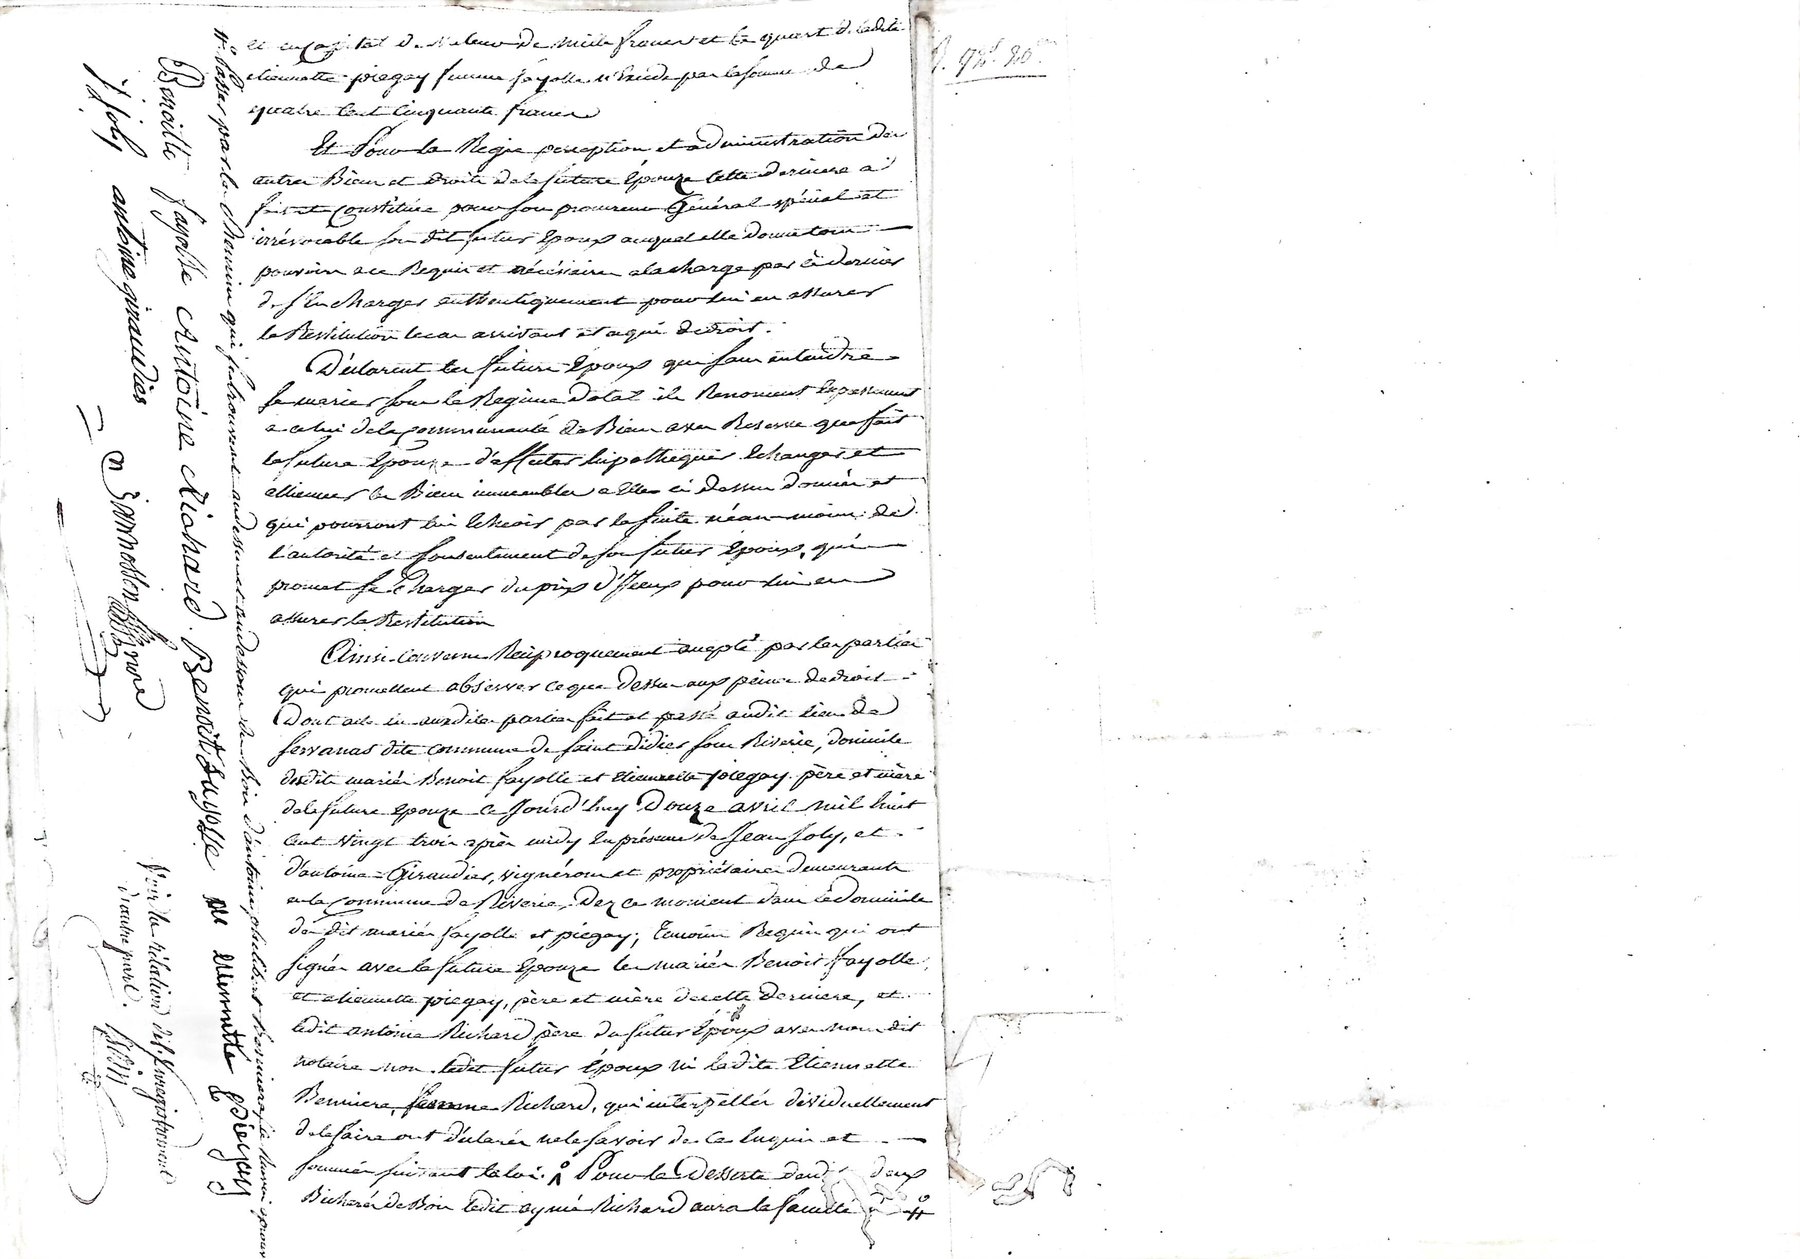 et capital de valeur de mille francs et le quart de ladite
etiennette piegay femme fayolle n'Excede pas la somme de
quatre Cent Cinquante francs
Et Pour la Regie perception et administration des
autres Biens et droits de la future Epouze Cette derniere a
fait et Constitué pour son procureur Général spécial et
irrévocable son dit futur Epoux auquel elle donne tous
pouvoirs a ce Requis et nécéssaires a la charge par ce dernier
de s'En charger authentiquement pour lui en assurer
la Restitution le cas arrivant et a qui de droit.
Déclarent les futurs Epoux que sans entendre
se marier sous le Regime dotal ils Renoncent Expressement
a celui de la Communauté de Biens avec Reserve que fait
la future Epouze d'affecter hipothequer Echanger et
alliener les Biens immeubles a Elle ci dessus donnés et
qui pourront lui Echeoir par la suite néan-moins de
l'autorité et Consentement de son futur Epoux, qui
promet se Charger du prix d'Iceux pour lui en
assurer la Restitution
Ainsi Convenu Réciproquement accepté par les parties
qui promettent observer ce que dessus aux peines de droit
Dont acte aux susdites parties fait et passé audit lieu de
servanas dite commune de saint didier sous Riverie, domicile
desdits mariés Benoit fayolle et etiennette piegay père et mère
de la future Epouze ce Jourd'huy Douze avril mil huit
cent vingt trois après midy En présence de Jean Joly, et
d'antoine Giraudier, vignérons et propriétaires demeurants
en la Commune de Riverie, Dez ce moment dans le Domicile
des dits mariés fayolle et piegay; temoins Requis qui ont
signés avec la future Epouze les mariés Benoit fayolle
et etiennette piegay, père et mère de cette derniere, et
ledit antoine Richard père du futur Epoux avec nous dit
notaire non ledit futur Epoux ni ladite Etiennette
Berniere femme Richard, qui interpellés dividuellement
de le faire ont déclarés ne le savoir de ce Enquis et
sommés suivant la loi. Pour la Desserte deux
Bicherés de Bois ledit aymé Richard aura la faculté
de Passer par les chemins qui se trouvent au dessus et au dessous du Bois d'antoine
Benoitte fayolle Antoine Richard Benoit fayolle etiennette piegay
J Joly antoine giraudier
Voir la rélation de l'Enregistrement
d'autre part.